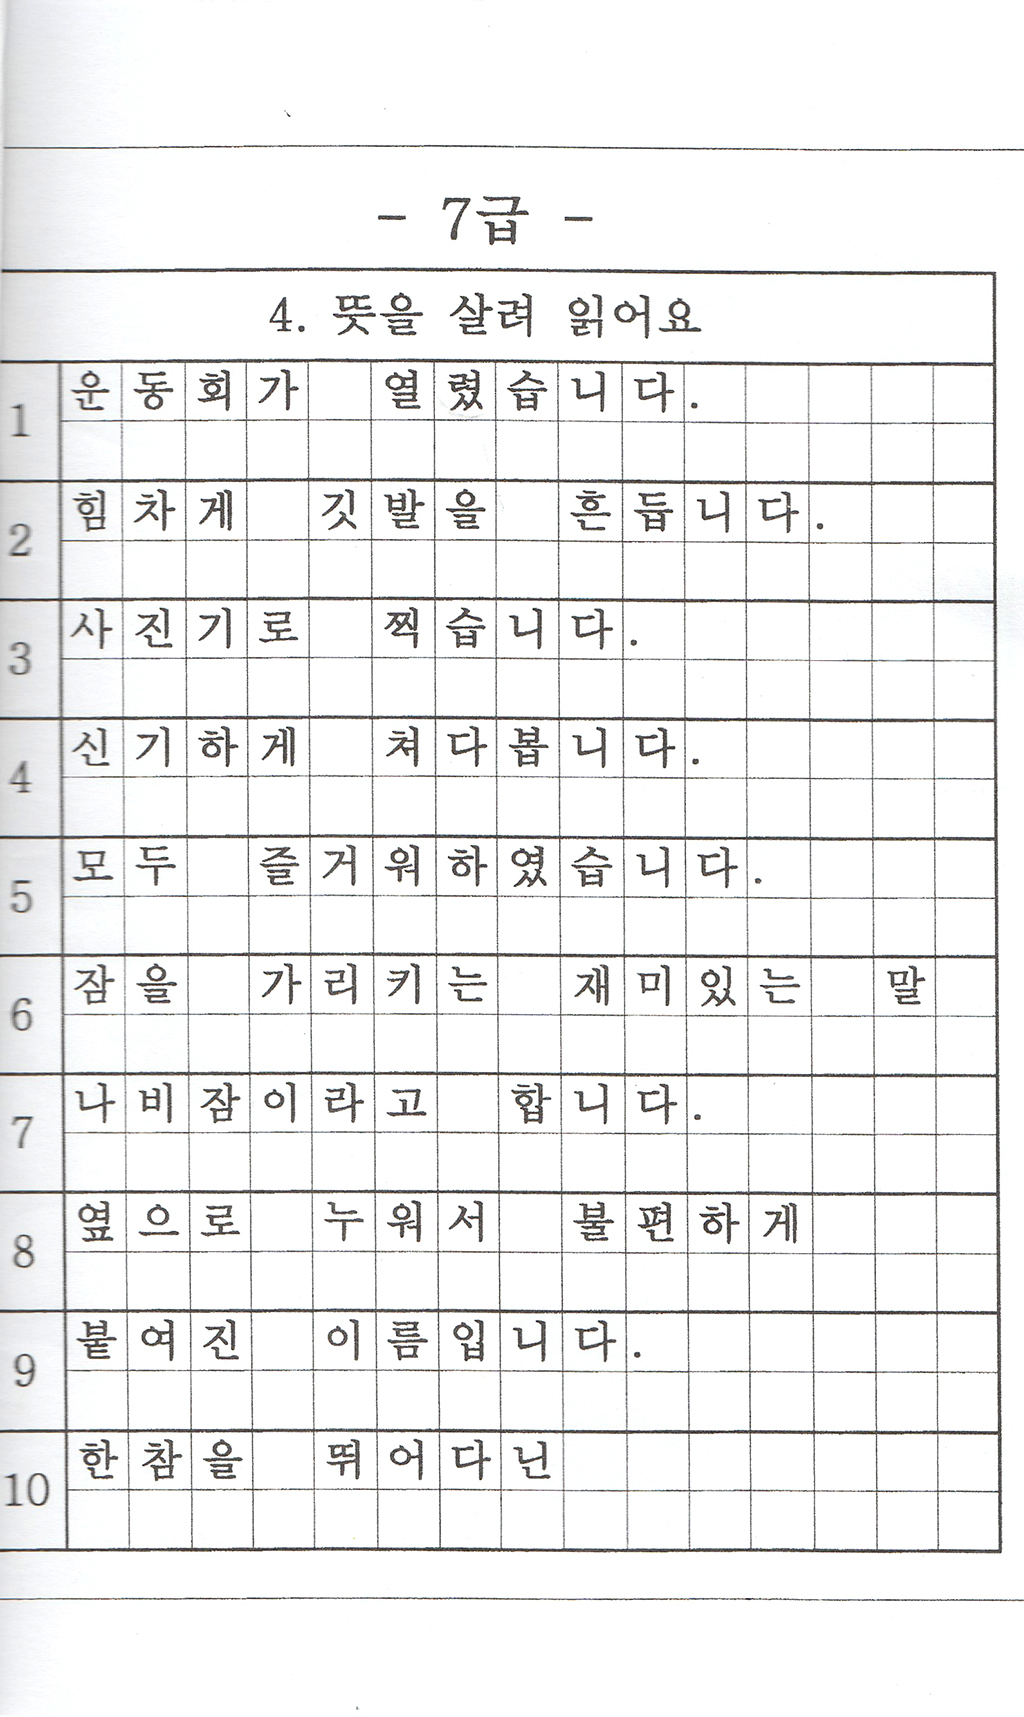 - 7급 -
4. 뜻을 살려 읽어요
1 운동회가 열렸습니다.
2 힘차게 깃발을 흔듭니다.
3 사진기로 찍습니다.
4 신기하게 쳐다봅니다.
5 모두 즐거워하였습니다.
6 잠을 가리키는 재미있는 말
7 나비잠이라고 합니다.
8 옆으로 누워서 불편하게
9 붙여진 이름입니다.
10 한참을 뛰어다닌